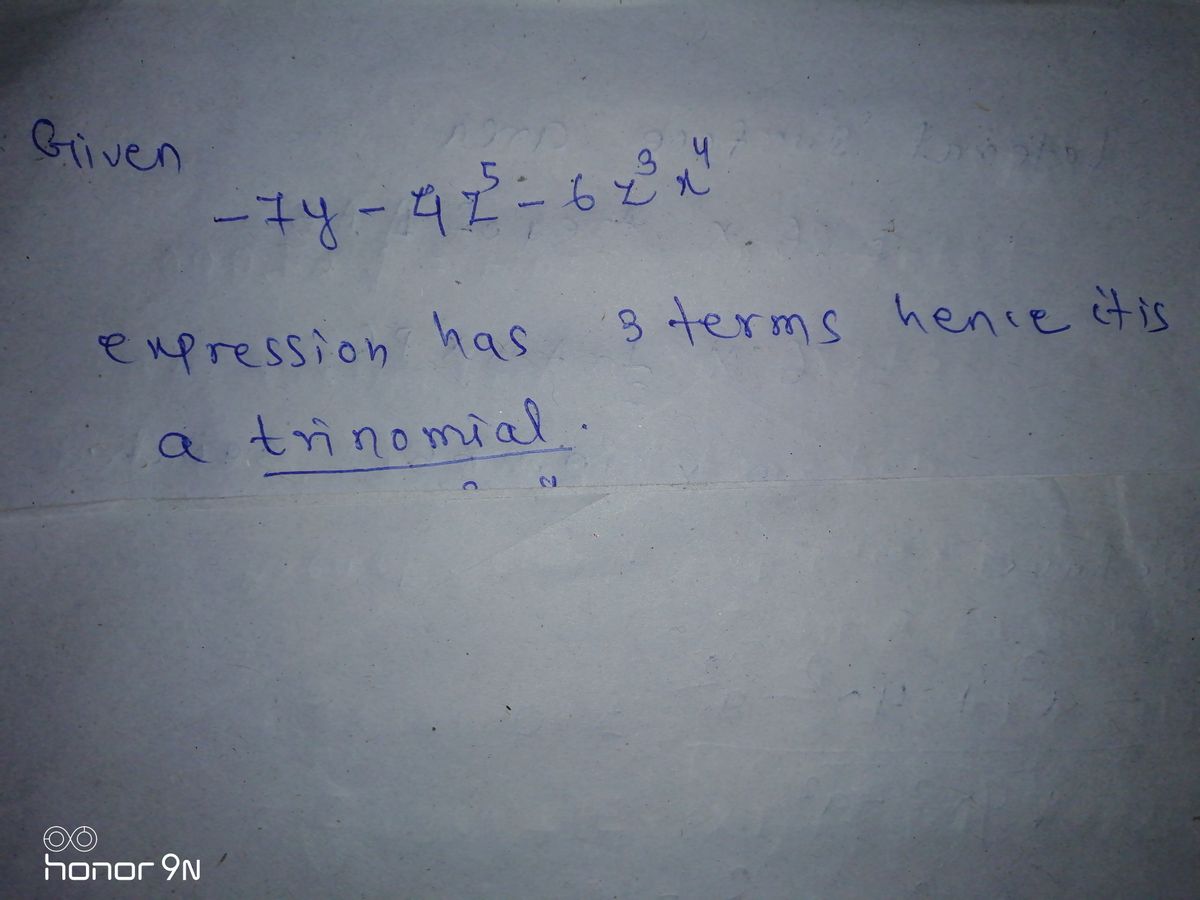 Given
-7y - 4z⁵ - 6z³x⁴
expression has 3 terms hence it is
a trinomial.
honor 9N